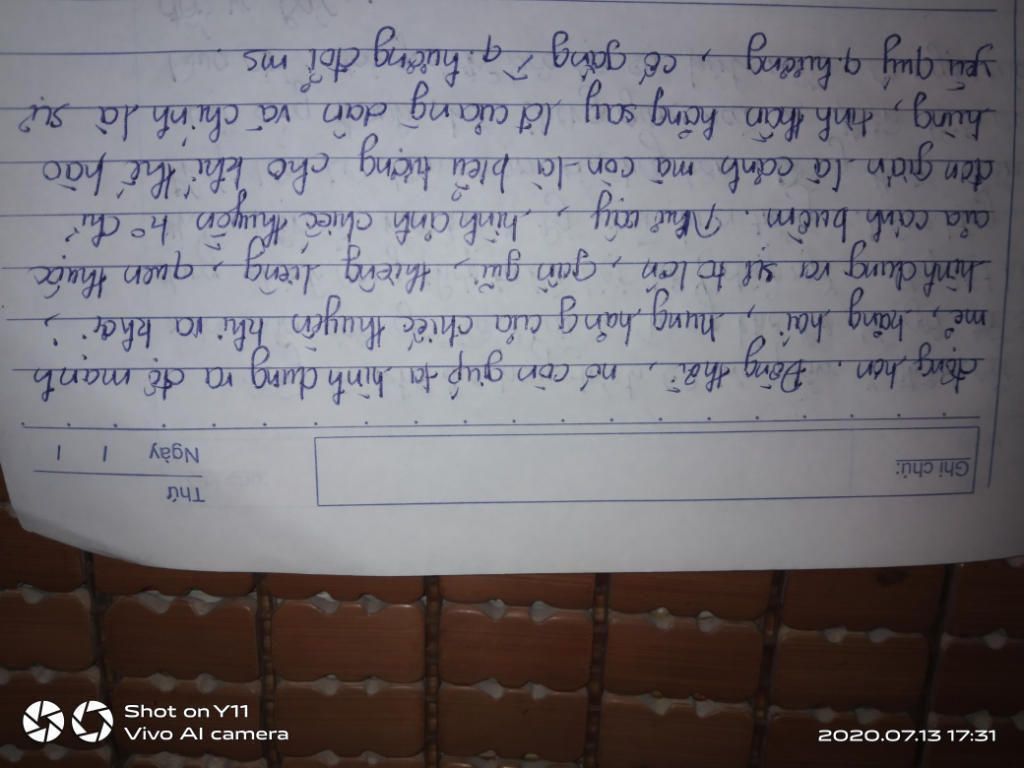 Ghi chú:
Thứ
Ngày / /
động hơn. Đồng thời, nó còn giúp ta hình dung ra độ mạnh
mẽ, hăng hái, hung hăng của chiếc thuyền khi ra khơi,
hình dung ra sự to lớn, gần gũi, thường liêng, quen thuộc
của cánh buồm. Như vậy, hình ảnh chiếc thuyền k° chỉ
đơn giản là cảnh mà còn là biểu tượng cho khí thế hào
hùng, tinh thần hăng say lđ của ng dân và chính là sự
yêu quý q.hương, cố gắng vì q.hương đổi ms.
Shot on Y11
Vivo AI camera
2020.07.13 17:31